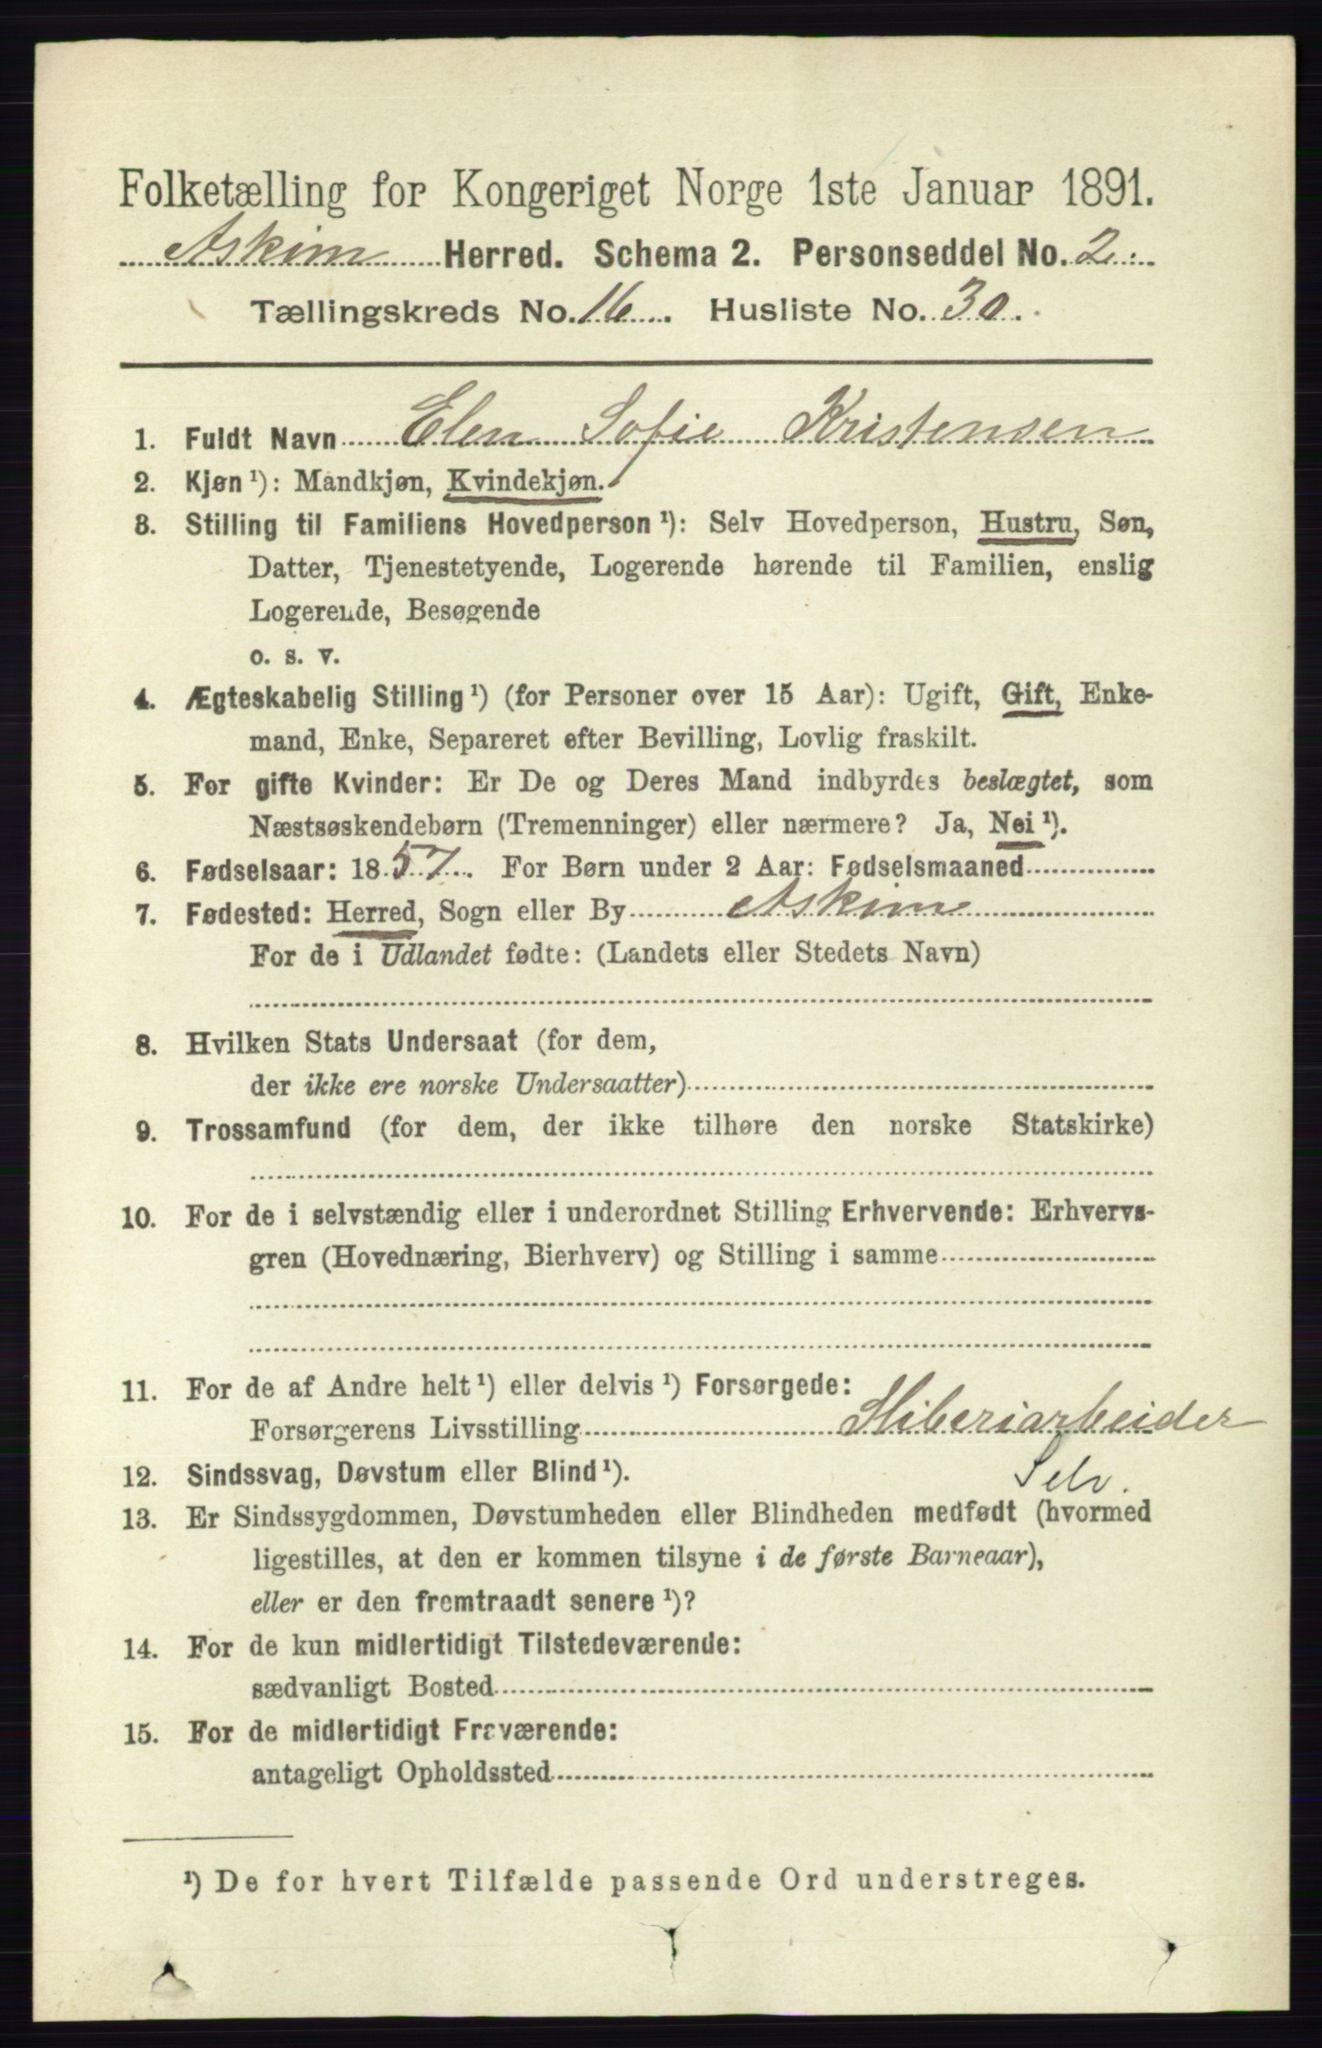 Folketælling for Kongeriget Norge 1ste Januar 1891.
Askim Herred. Schema 2. Personseddel No. 2
Tællingskreds No. 16. Husliste No. 30.
1. Fuldt Navn Elen Sofie Kristensen
2. Kjøn ¹): Mandkjøn, Kvindekjøn.
3. Stilling til Familiens Hovedperson ¹): Selv Hovedperson, Hustru, Søn,
Datter, Tjenestetyende, Logerende hørende til Familien, enslig
Logerende, Besøgende
o. s. v.
4. Ægteskabelig Stilling ¹) (for Personer over 15 Aar): Ugift, Gift, Enke-
mand, Enke, Separeret efter Bevilling, Lovlig fraskilt.
5. For gifte Kvinder: Er De og Deres Mand indbyrdes beslægtet, som
Næstsøskendebørn (Tremenninger) eller nærmere? Ja, Nei ¹).
6. Fødselsaar: 1857. For Børn under 2 Aar: Fødselsmaaned
7. Fødested: Herred, Sogn eller By Askim
For de i Udlandet fødte: (Landets eller Stedets Navn)
8. Hvilken Stats Undersaat (for dem,
der ikke ere norske Undersaatter)
9. Trossamfund (for dem, der ikke tilhøre den norske Statskirke)
10. For de i selvstændig eller i underordnet Stilling Erhvervende: Erhvervs-
gren (Hovednæring, Bierhverv) og Stilling i samme
11. For de af Andre helt ¹) eller delvis ¹) Forsørgede:
Forsørgerens Livsstilling Sliberiarbeider
12. Sindssvag, Døvstum eller Blind ¹). Selv.
13. Er Sindssygdommen, Døvstumheden eller Blindheden medfødt (hvormed
ligestilles, at den er kommen tilsyne i de første Barneaar),
eller er den fremtraadt senere ¹)?
14. For de kun midlertidigt Tilstedeværende:
sædvanligt Bosted
15. For de midlertidigt Fraværende:
antageligt Opholdssted
¹) De for hvert Tilfælde passende Ord understreges.